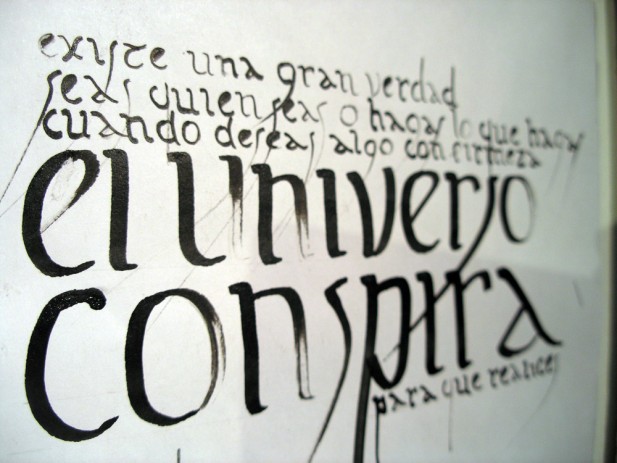 existe una gran verdad
seas quien seas o hagas lo que hagas
cuando deseas algo con firmeza
el universo
conspira
para que realices